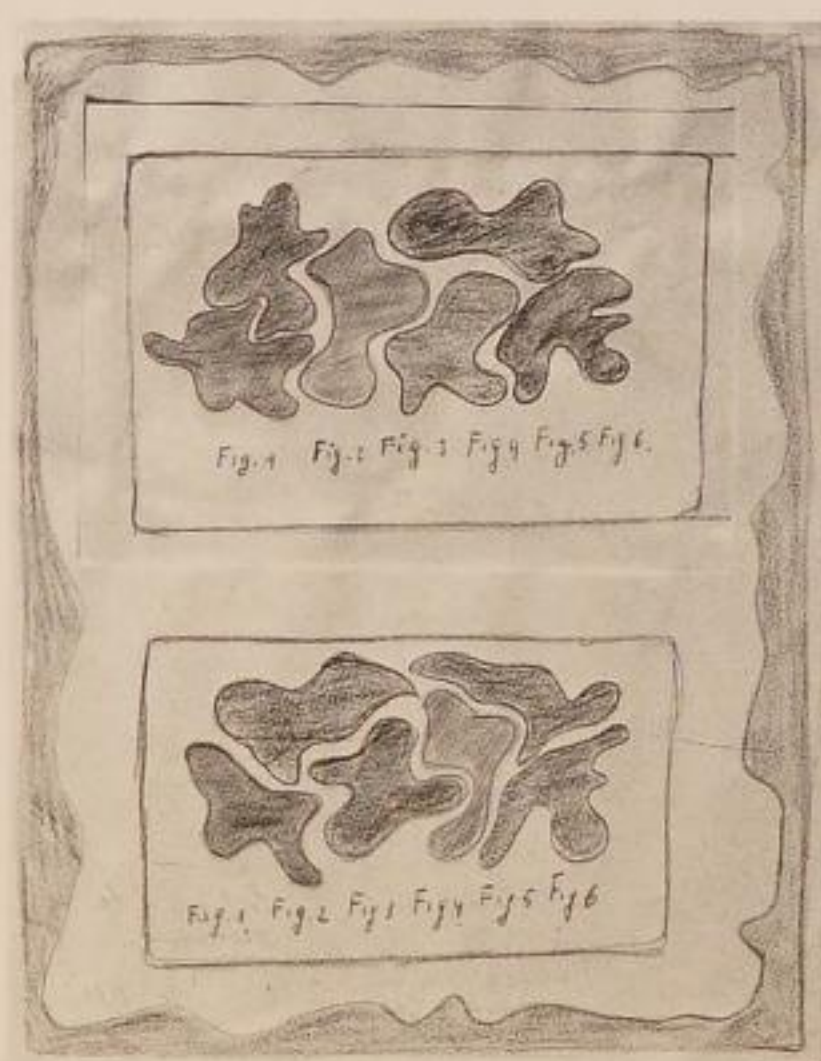 Fig. 1 Fig. 2 Fig. 3 Fig 4 Fig. 5 Fig 6.
Fig. 1 Fig. 2 Fig 3 Fig 4 Fig 5 Fig 6